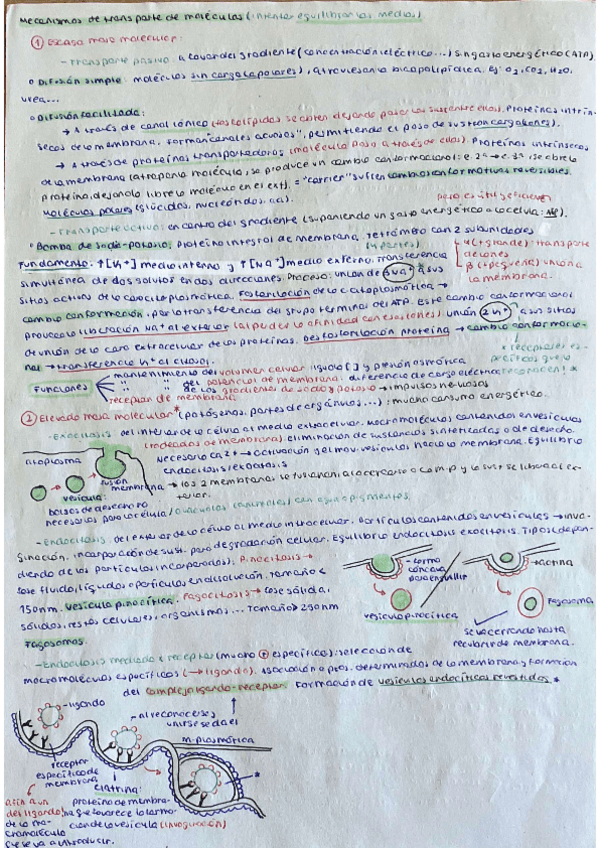 Mecanismos de transporte de moléculas (intentar equilibrar los medios)
① Escasa masa molecular:
- Transporte pasivo: a favor del gradiente (concentración, eléctrico...) sin gasto energético (ATP)
° Difusión simple: moléculas sin carga (apolares), atraviesan la bicapa lipídica. Ej: O2, CO2, H2O,
urea...
° Difusión facilitada:
→ A través de canal iónico (fosfolípidos se cortan dejando pasar las sust. entre ellos). Proteínas intrín-
secas de la membrana, forman "canales acuosos", permitiendo el paso de sust. con carga (iones).
→ A través de proteínas transportadoras (molécula pasa a través de ellas). Proteínas intrínsecas
de la membrana (atrapa una molécula, se produce un cambio conformacional: e. 2ª → e. 3ª, se abre la
proteína, dejando libre la molécula en el ext). = "carrier" sufren cambios conformativos reversibles.
Moléculas polares (glúcidos, nucleótidos, aa).
- Transporte activo: en contra del gradiente (suponiendo un gasto energético a la célula: ATP).
° Bomba de sodio-potasio: Proteína integral de membrana, tetrámero con 2 subunidades
(4 partes)
α (+ grande): transporte
de iones
β (+ pequeña): unión a
la membrana.
Fundamento: ↑[K+] medio interno y ↑[Na+] medio externo. Transferencia
simultánea de dos solutos en dos direcciones. Proceso: unión de 3Na+ a sus
sitios activos de la cara citoplasmática. Fosforilación de la c. citoplasmática →
cambio conformación, por la transferencia del grupo terminal del ATP. Este cambio conformacional
provoca la liberación Na+ al exterior (al perder la afinidad con esas iones) unión 2K+ a sus sitios
de unión de la cara extracelular de las proteínas. Desfosforilación proteína → cambio conformacio-
nal → transferencia K+ al citosol.
* receptores es-
pecíficos que lo
reconocen! *
Funciones
mantenimiento del volumen celular: iguala [ ] y presión osmótica
" " del potencial de membrana: diferencia de carga eléctrica
" " de los gradientes de sodio y potasio → impulsos nerviosos
receptor de membrana
② Elevada masa molecular * (patógenos, partes de orgánulos...): mucho consumo energético.
- Exocitosis: del interior de la célula al medio extracelular. Macromoléculas contenidas en vesículas
(rodeadas de membrana). Eliminación de sustancias sintetizadas o de desecho.
Necesario Ca2+ → activación del mov. vesículas hacia la membrana. Equilibrio
endocitosis/exocitosis
citoplasma
fusión
membrana → las 2 membranas se fusionan al acercarse a la m.p y la sust se libera al ex-
terior.
vesícula:
bolsas de desecho no
necesarios para la célula / vacuolas (animales) con agua o pigmentos.
- Endocitosis: del exterior de la célula al medio intracelular. Partículas contenidas en vesículas → inva-
ginación, incorporación de sust. para degradación celular. Equilibrio endocitosis exocitosis. Tipos (depen-
diendo de las partículas incorporadas): Pinocitosis →
fase fluida, líquidos o partículas en disolución. Tamaño ≤
150nm. Vesícula pinocítica. Fagocitosis → fase sólida,
sólidos, restos celulares, organismos... Tamaño > 250nm
Fagosomas.
- forma
cóncava
para engullir
vesícula pinocítica
→ actina
Fagosoma
se va cerrando hasta
recubrir de membrana.
- Endocitosis mediada x receptor (mucho ⊕ específica): selección de
macromoléculas específicas (→ ligando). Asociación a prots. determinadas de la membrana y formación
del complejo ligando-receptor. Formación de vesículas endocíticas revestidas.*
→ ligando
→ al reconocerse y
unirse se da el
m. plasmática
receptor
específico de
membrana
clatrina:
proteína de membra-
na que favorece la forma-
ción de la vesícula (invaginación)
afín a un
del ligando,
de la ma-
cromolécula
que se va a introducir.